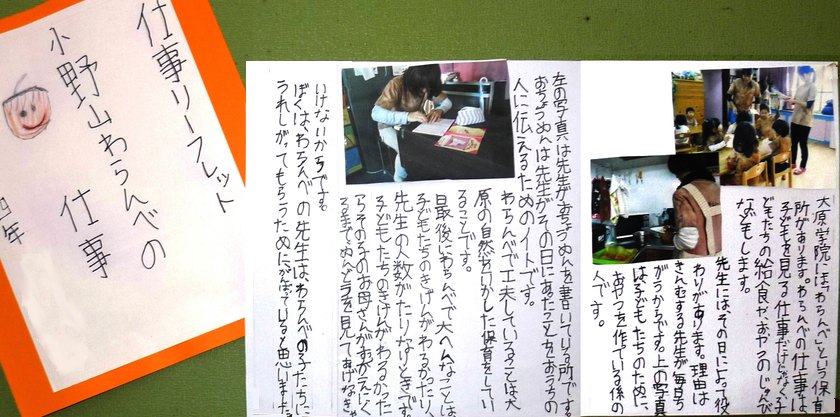 仕事リーフレット
小野山わらんべの
仕事
四年
大原学院には、わらんべという保育
所があります。わらんべの仕事は、
子どもを見る仕事だけじゃなく、子
どもたちの給食や、おやつのじゅんび
などもします。
先生にはその日によって役
わりがあります。理由は
きんむする先生が毎日ち
がうからです。上の写真
は子どもたちのために
おやつを作っている係の
人です。
左の写真は先生がおちょうめんを書いている所です。
おちょうめんは先生がその日にあったことをおうちの
人に伝えるためのノートです。
わらんべで工夫していることは大
原の自然を生かした保育をしてい
ることです。
最後にわらんべで大へんなことは
子どもたちのきげんがわるかったり、
先生の人数がたりないときです。
子どもたちのきげんがわるかった
らその子のお母さんがむかえにく
るまでめんどうを見てあげなきゃ
いけないからです。
ぼくは、わらんべの先生は、わらんべの子たちに
うれしがってもらうためにがんばっていると思いました。